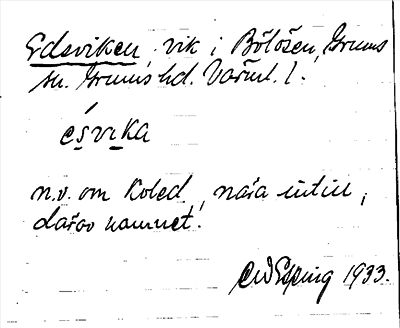 Edsviken, vik i Bölösen, Grums
sn. Grums hd. Värml. l.
ésvika
n.v. om Koled, nära intill,
därav namnet.
CW Esping 1933.